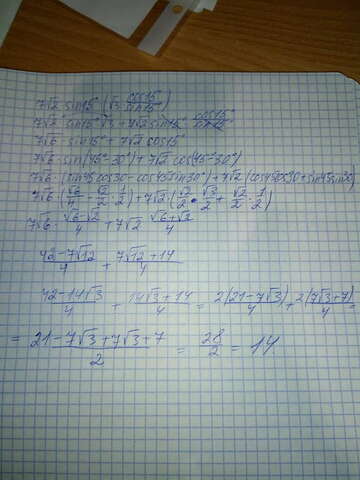 7√2 · sin15° (√3 · cos15°/sin15°)
7√2 · sin15° · √3 + 7√2 sin15° · cos15°/sin15°
7√6 · sin15° + 7√2 cos15°
7√6 · sin(45°-30°) + 7√2 cos(45°-30°)
7√6 · (sin45 cos30 - cos45 sin30°) + 7√2 (cos45 cos30 + sin45 sin30)
7√6 (√6/4 - √2/2 · 1/2) + 7√2 (√2/2 · √3/2 + √2/2 · 1/2)
7√6 · (√6-√2)/4 + 7√2 · (√6+√2)/4
(42-7√12)/4 + (7√12+14)/4
(42-14√3)/4 + (14√3+14)/4 = 2(21-7√3)/4 + 2(7√3+7)/4 =
= (21-7√3+7√3+7)/2 = 28/2 = 14